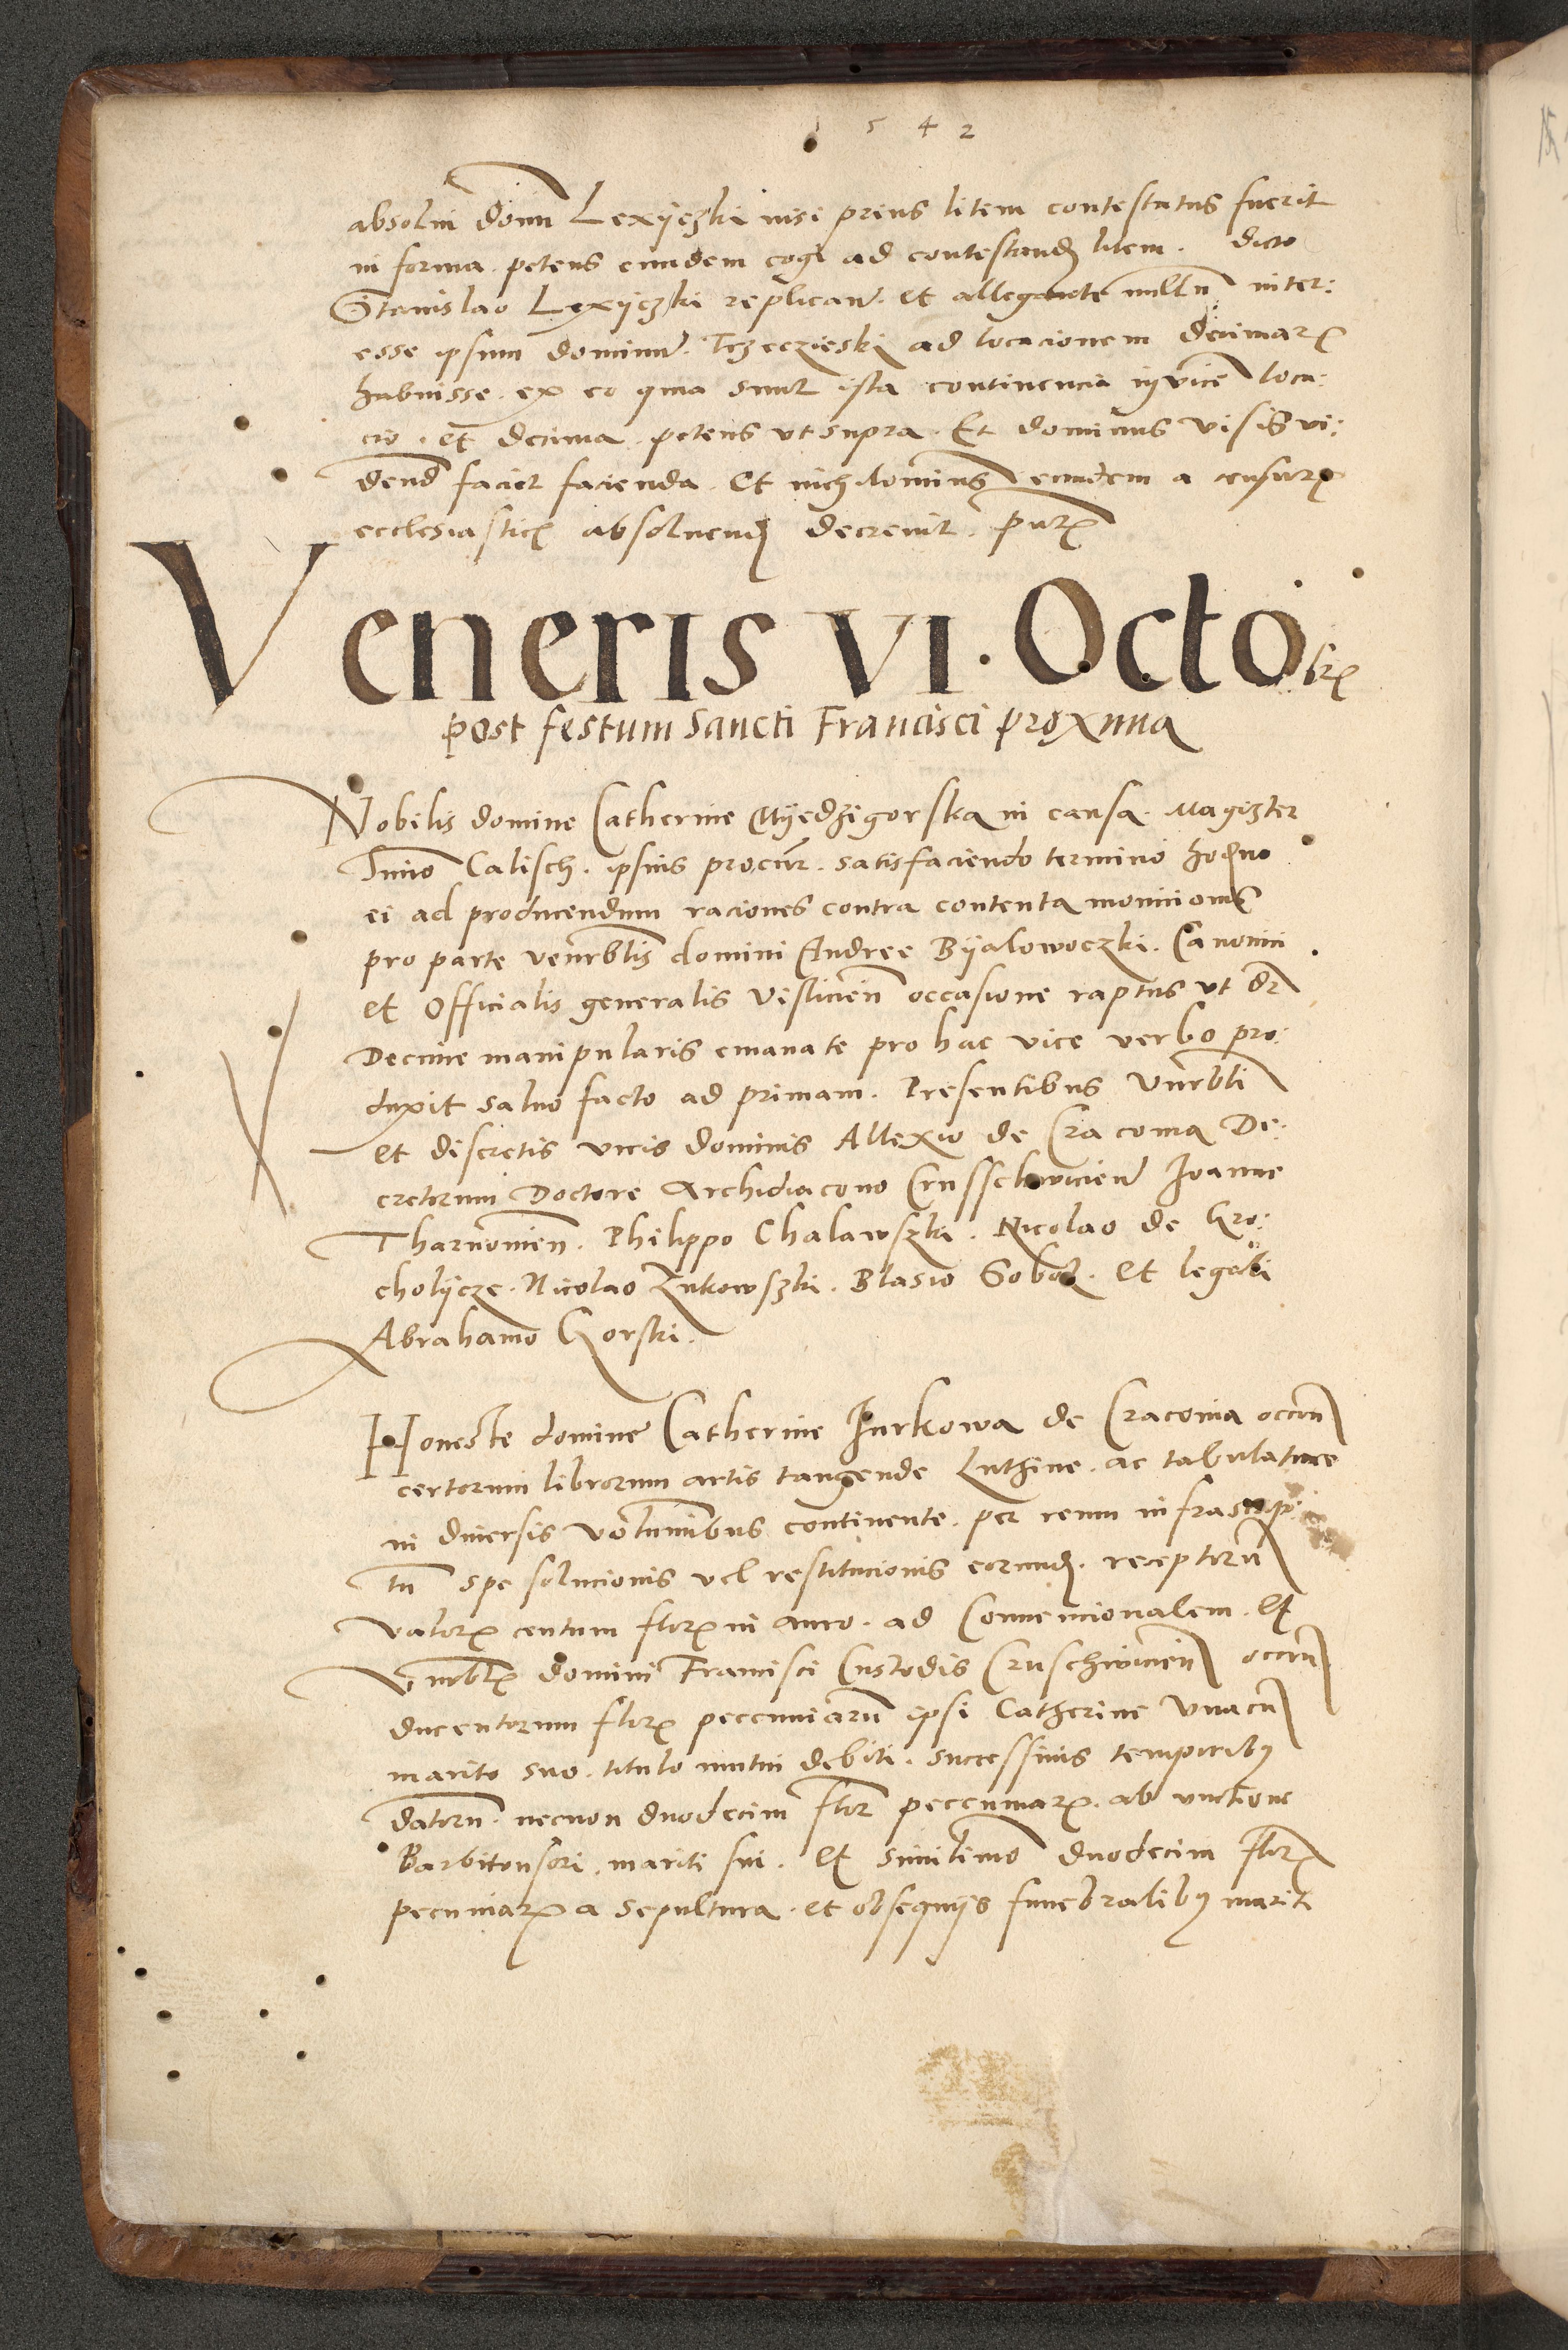 1542
absolui domi Lexÿczki nisi prius litem contestatus fuerit
in forma. petens eundem cogi ad contestand litem. dicto
Stanislao Lexÿczki replican. et allegante nullu inter:
esse ipsum dominu. Trzeczieski ad locacionem decimar
habuisse. ex eo quia sunt ista continencia invice loca:
cio. et decima. petens ut supra. Et dominus visis vi:
dend faciet facienda. Et nichilominus eundem a censur
ecclesiastic absoluend decreuit. pntz
Veneris VI. Octobr
post festum Sancti Francisci proxima
Nobilis domine Catherine Myedzigorska in causa. Magister
Simo Calisch. ipsius procur. satisfaciendo termino hodierno
ei ad producendum raciones contra contenta monicionis
pro parte venerblis domini Andree Bÿalowoczki. Canonici
et Officialis generalis Vislicien occasione raptus ut dr
Decime manipularis emanate pro hac vice verbo pro:
duxit saluo facto ad primam. Presentibus Vnrbli
et discretis viris dominis Allexio de Cracouia De:
cretorum Doctore Archidiacono Crusschwicien Joanne
Tharnowien. Philippo Chalawszki. Nicolao de Gro:
cholÿcze. Nicolao Zukowszki. Blasio Sobol. et legali
Abrahamo Gorski.
Honeste domine Catherine Jurkowa de Cracouia occne
certorum librorum artis tangende Luthine. ac tabulature
in diuersis voluminibus continente. per reum infrascrip:
tu spe solucionis vel restitucionis eorund. receptoru
valor centum flor in auro. ad Conuencionalem. et
Vnrblis domini Francisci Custodis Cruschwicien occne
ducentorum flor peccuniaru ipsi Catherine vnacu
marito suo. titulo mutui debiti. successiuis temporibus
datoru. necnon duodecim flor peccuniar. ab vnctione
Barbitonsori. mariti sui. et similimo duodecim flor
pecuniar a sepultura. et obsequijs funebralibus marit